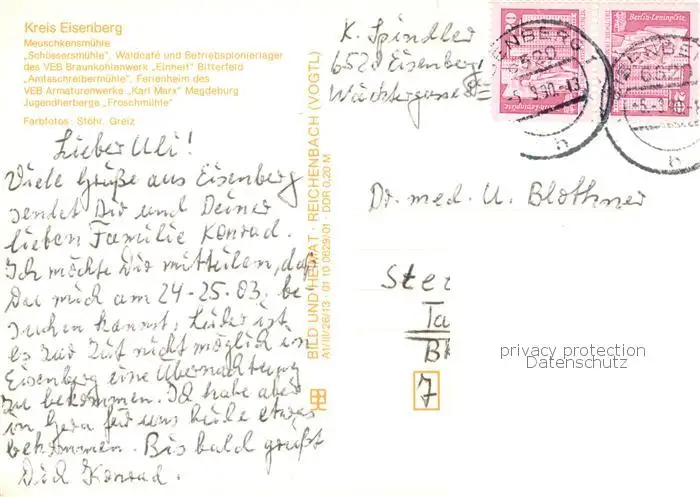 Kreis Eisenberg
Meuschkensmühle
„Schössersmühle", Waldcafé und Betriebspionierlager
des VEB Braunkohlenwerk „Einheit" Bitterfeld
„Amtsschreibermühle", Ferienheim des
VEB Armaturenwerke „Karl Marx" Magdeburg
Jugendherberge „Froschmühle"
Farbfotos: Stöhr, Greiz
Lieber Uli!
Viele Grüße aus Eisenberg
sendet Dir und Deiner
lieben Familie Konrad.
Ich möchte Dir mitteilen, daß
Du mich am 24-25.03. be-
suchen kannst, Leider ist
es zur Zeit nicht möglich in
Eisenberg eine Übernachtung
zu bekommen. Ich habe aber
in Gera für uns beide etwas
bekommen. Bis bald grüßt
Dich Konrad.
BILD UND HEIMAT · REICHENBACH (VOGTL)
A1/III/26/13 · 01 10 0629/01 · DDR 0,20 M
K. Spindler
6520 Eisenberg
Wächtergasse
Berlin-Leninplatz
6520
Dr. med. U. Blothner
Ste
Ta
B
7
privacy protection
Datenschutz